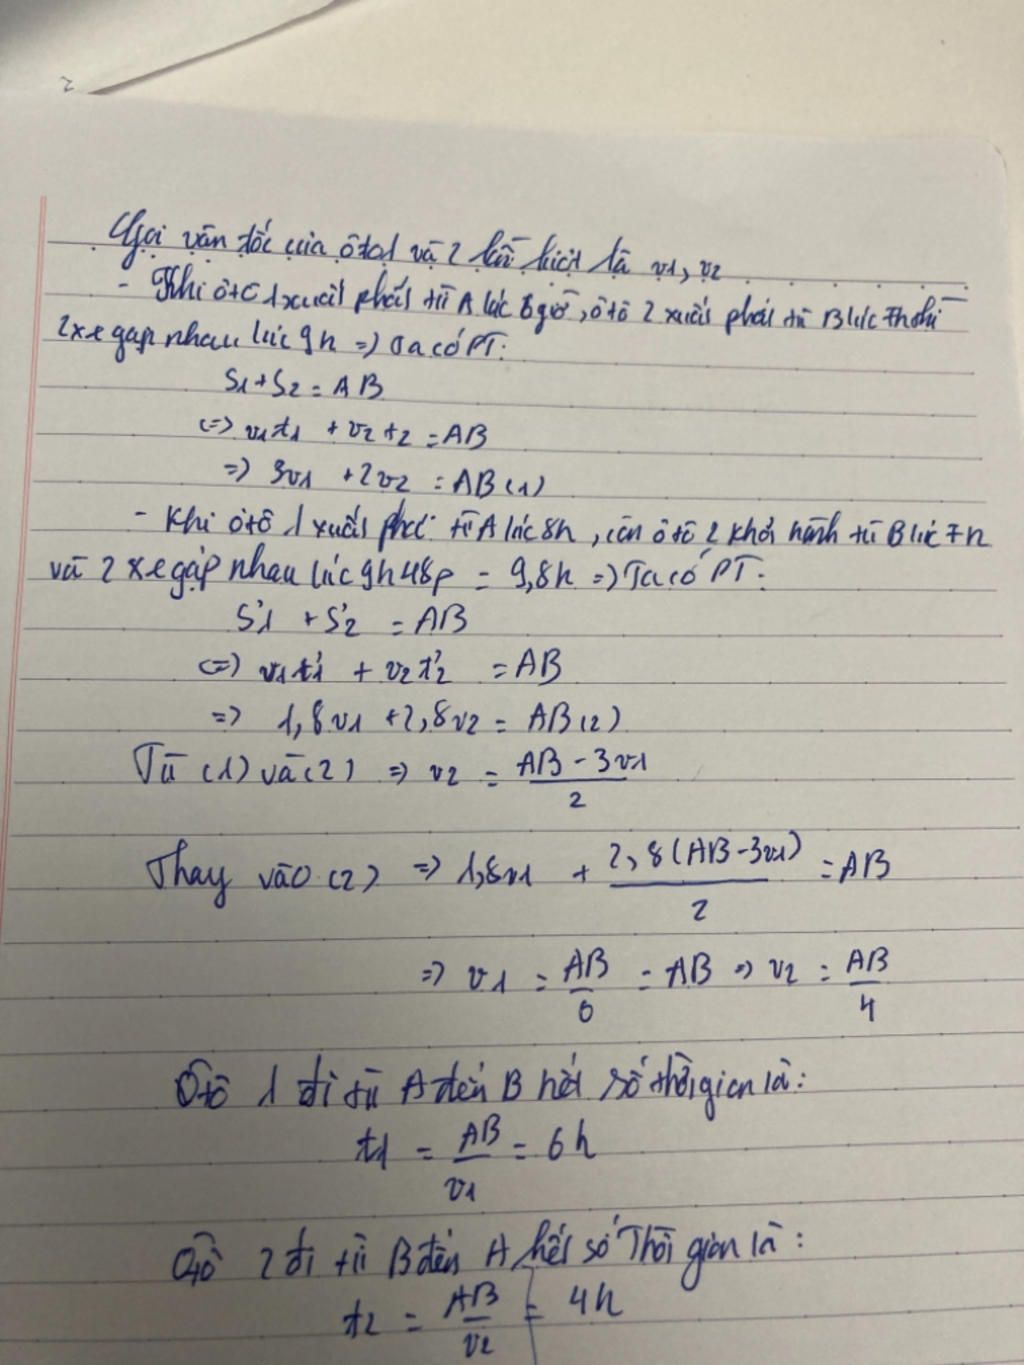 Gọi vận tốc của ôtô1 và 2 lần lượt là v1, v2
- Khi ôtô 1 xuất phát từ A lúc 6 giờ, ôtô 2 xuất phát từ B lúc 7h thì
2 xe gặp nhau lúc 9h => Ta có PT:
S1 + S2 = AB
<=> v1t1 + v2t2 = AB
=> 3v1 + 2v2 = AB (1)
- Khi ôtô 1 xuất phát từ A lúc 8h, còn ôtô 2 khởi hành từ B lúc 7h
và 2 xe gặp nhau lúc 9h48p = 9,8h => Ta có PT:
S'1 + S'2 = AB
<=> v1t'1 + v2t'2 = AB
=> 1,8v1 + 2,8v2 = AB (2)
Từ (1) và (2) => v2 = (AB - 3v1)/2
Thay vào (2) => 1,8v1 + 2,8(AB - 3v1)/2 = AB
=> v1 = AB/6 = AB => v2 = AB/4
Ôtô 1 đi từ A đến B hết số thời gian là:
t1 = AB/v1 = 6h
Ôtô 2 đi từ B đến A hết số Thời gian là:
t2 = AB/v2 = 4h